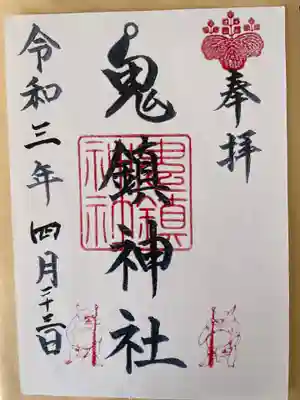 奉拝
鬼鎮神社
鬼鎮
神社
令和三年 四月二十三日